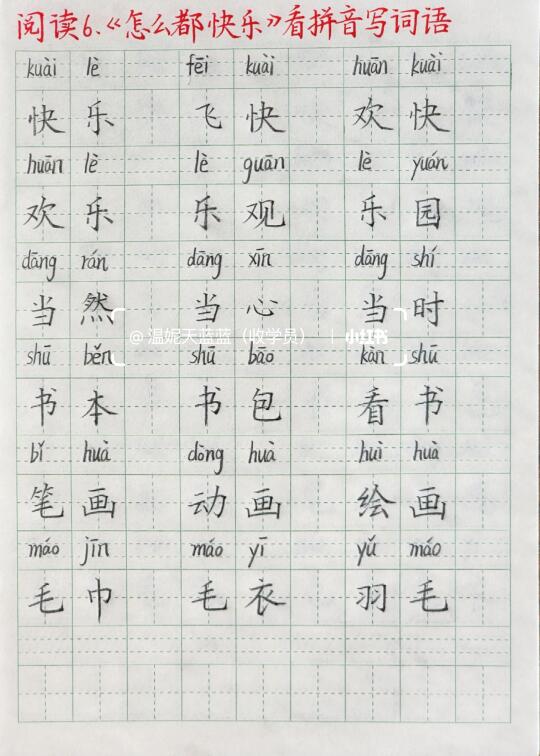 阅读6.《怎么都快乐》看拼音写词语
kuài lè fēi kuài huān kuài
快乐 飞快 欢快
huān lè lè guān lè yuán
欢乐 乐观 乐园
dāng rán dāng xīn dāng shí
当然 当心 当时
@温妮天蓝蓝（收学员） | 小红书
shū běn shū bāo kàn shū
书本 书包 看书
bǐ huà dòng huà huì huà
笔画 动画 绘画
máo jīn máo yī yǔ máo
毛巾 毛衣 羽毛